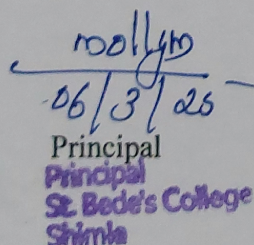 mollym
06/3/25
Principal
Principal
St. Bede's College
Shimla